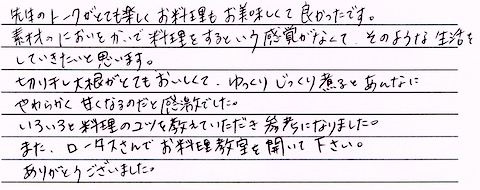 先生のトークがとても楽しくお料理もお美味しくて良かったです。
素材のにおいをかいで料理をするという感覚がなくて、そのような生活を
していきたいと思います。
切り干し大根がとてもおいしくて、ゆっくりじっくり煮るとあんなに
やわらかく甘くなるのだと感激でした。
いろいろと料理のコツを教えていただき参考になりました。
また、ロータスさんでお料理教室を開いて下さい。
ありがとうございました。